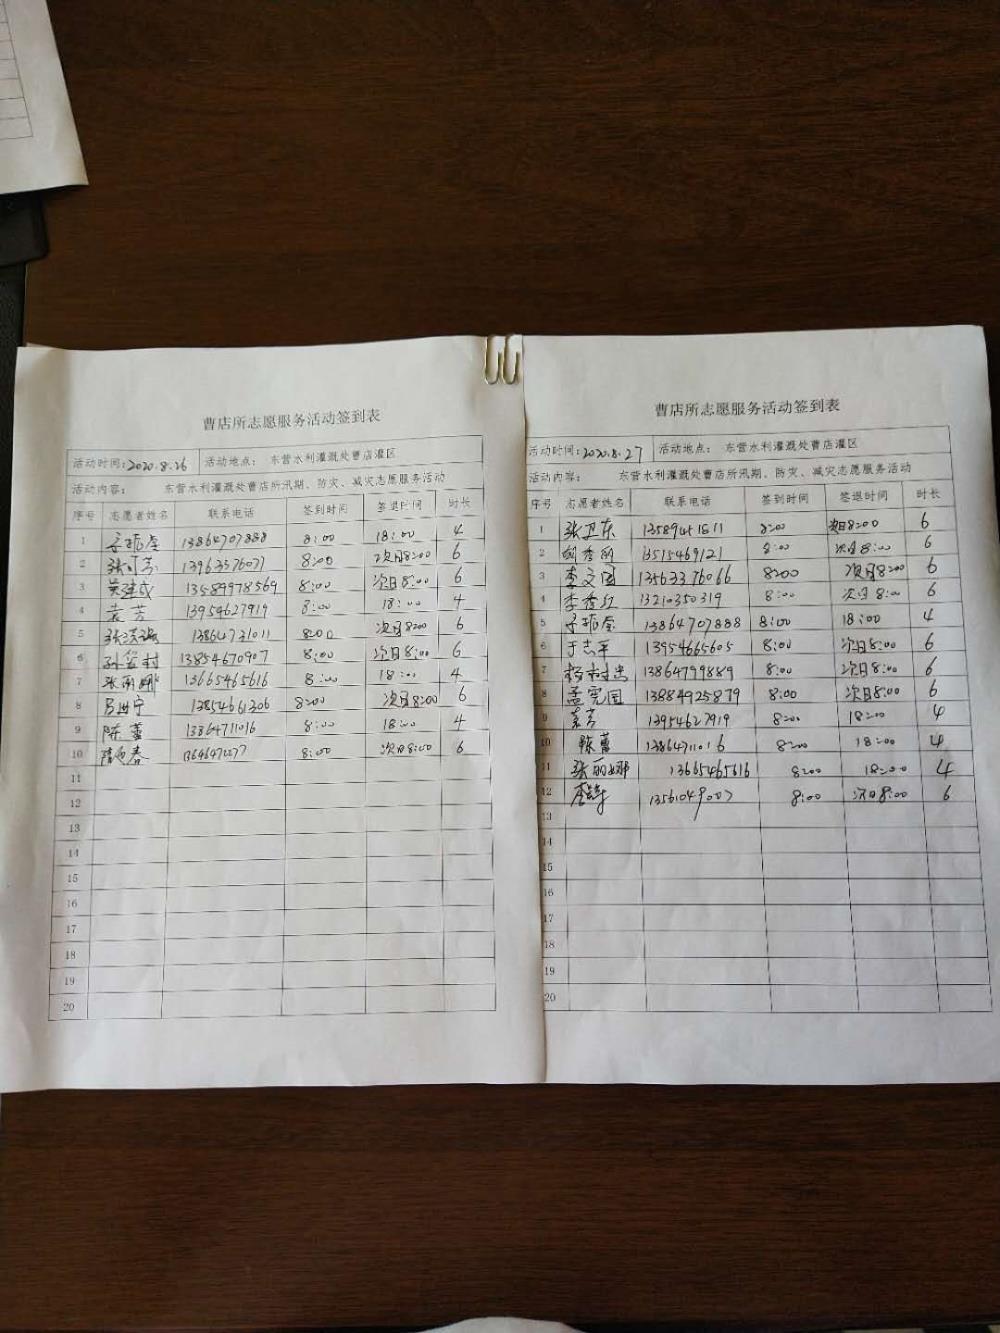 曹店所志愿服务活动签到表
活动时间:2020.8.26 活动地点: 东营水利灌溉处曹店灌区
活动内容: 东营水利灌溉处曹店所汛期、防灾、减灾志愿服务活动
序号 志愿者姓名 联系电话 签到时间 签退时间 时长
1 13864707888 8:00 18:00 4
2 13963576071 8:00 次日8:00 6
3 吴建成 13589978569 8:00 次日8:00 6
4 袁芳 13954627919 8:00 18:00 4
5 13864731011 8:00 次日8:00 6
6 13854670907 8:00 次日8:00 6
7 张丽娜 13665465616 8:00 18:00 4
8 13854661306 8:00 次日8:00 6
9 陈蕾 13864711016 8:00 18:00 4
10 8:00 次日8:00 6
11
12
13
14
15
16
17
18
19
20
曹店所志愿服务活动签到表
活动时间:2020.8.27 活动地点: 东营水利灌溉处曹店灌区
活动内容: 东营水利灌溉处曹店所汛期、防灾、减灾志愿服务活动
序号 志愿者姓名 联系电话 签到时间 签退时间 时长
1 张卫东 8:00 次日8:00 6
2 13515469121 8:00 次日8:00 6
3 李文国 13563376066 8:00 次日8:00 6
4 李秀红 13210350319 8:00 次日8:00 6
5 13864707888 8:00 18:00 4
6 于志平 13954665605 8:00 次日8:00 6
7 杨树忠 13864799889 8:00 次日8:00 6
8 孟宪国 13884925879 8:00 次日8:00 6
9 袁芳 13954627919 8:00 18:00 4
10 陈蕾 13864711016 8:00 18:00 4
11 张丽娜 13665465616 8:00 18:00 4
12 13561049007 8:00 次日8:00 6
13
14
15
16
17
18
19
20